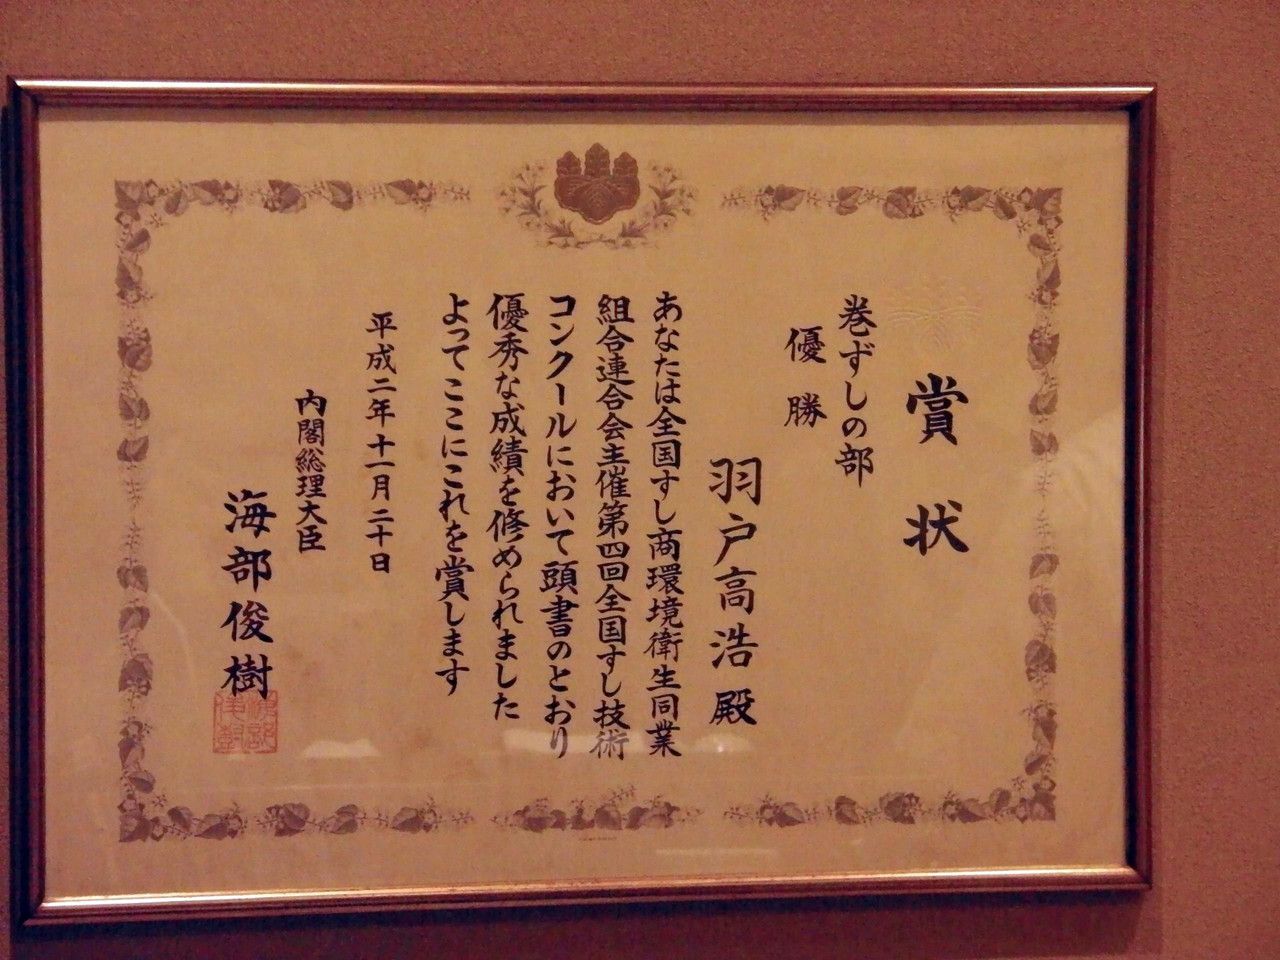 賞状
巻ずしの部
優勝
羽戸高浩殿
あなたは全国すし商環境衛生同業
組合連合会主催第四回全国すし技術
コンクールにおいて頭書のとおり
優秀な成績を修められました
よってここにこれを賞します
平成二年十一月二十日
内閣総理大臣
海部俊樹